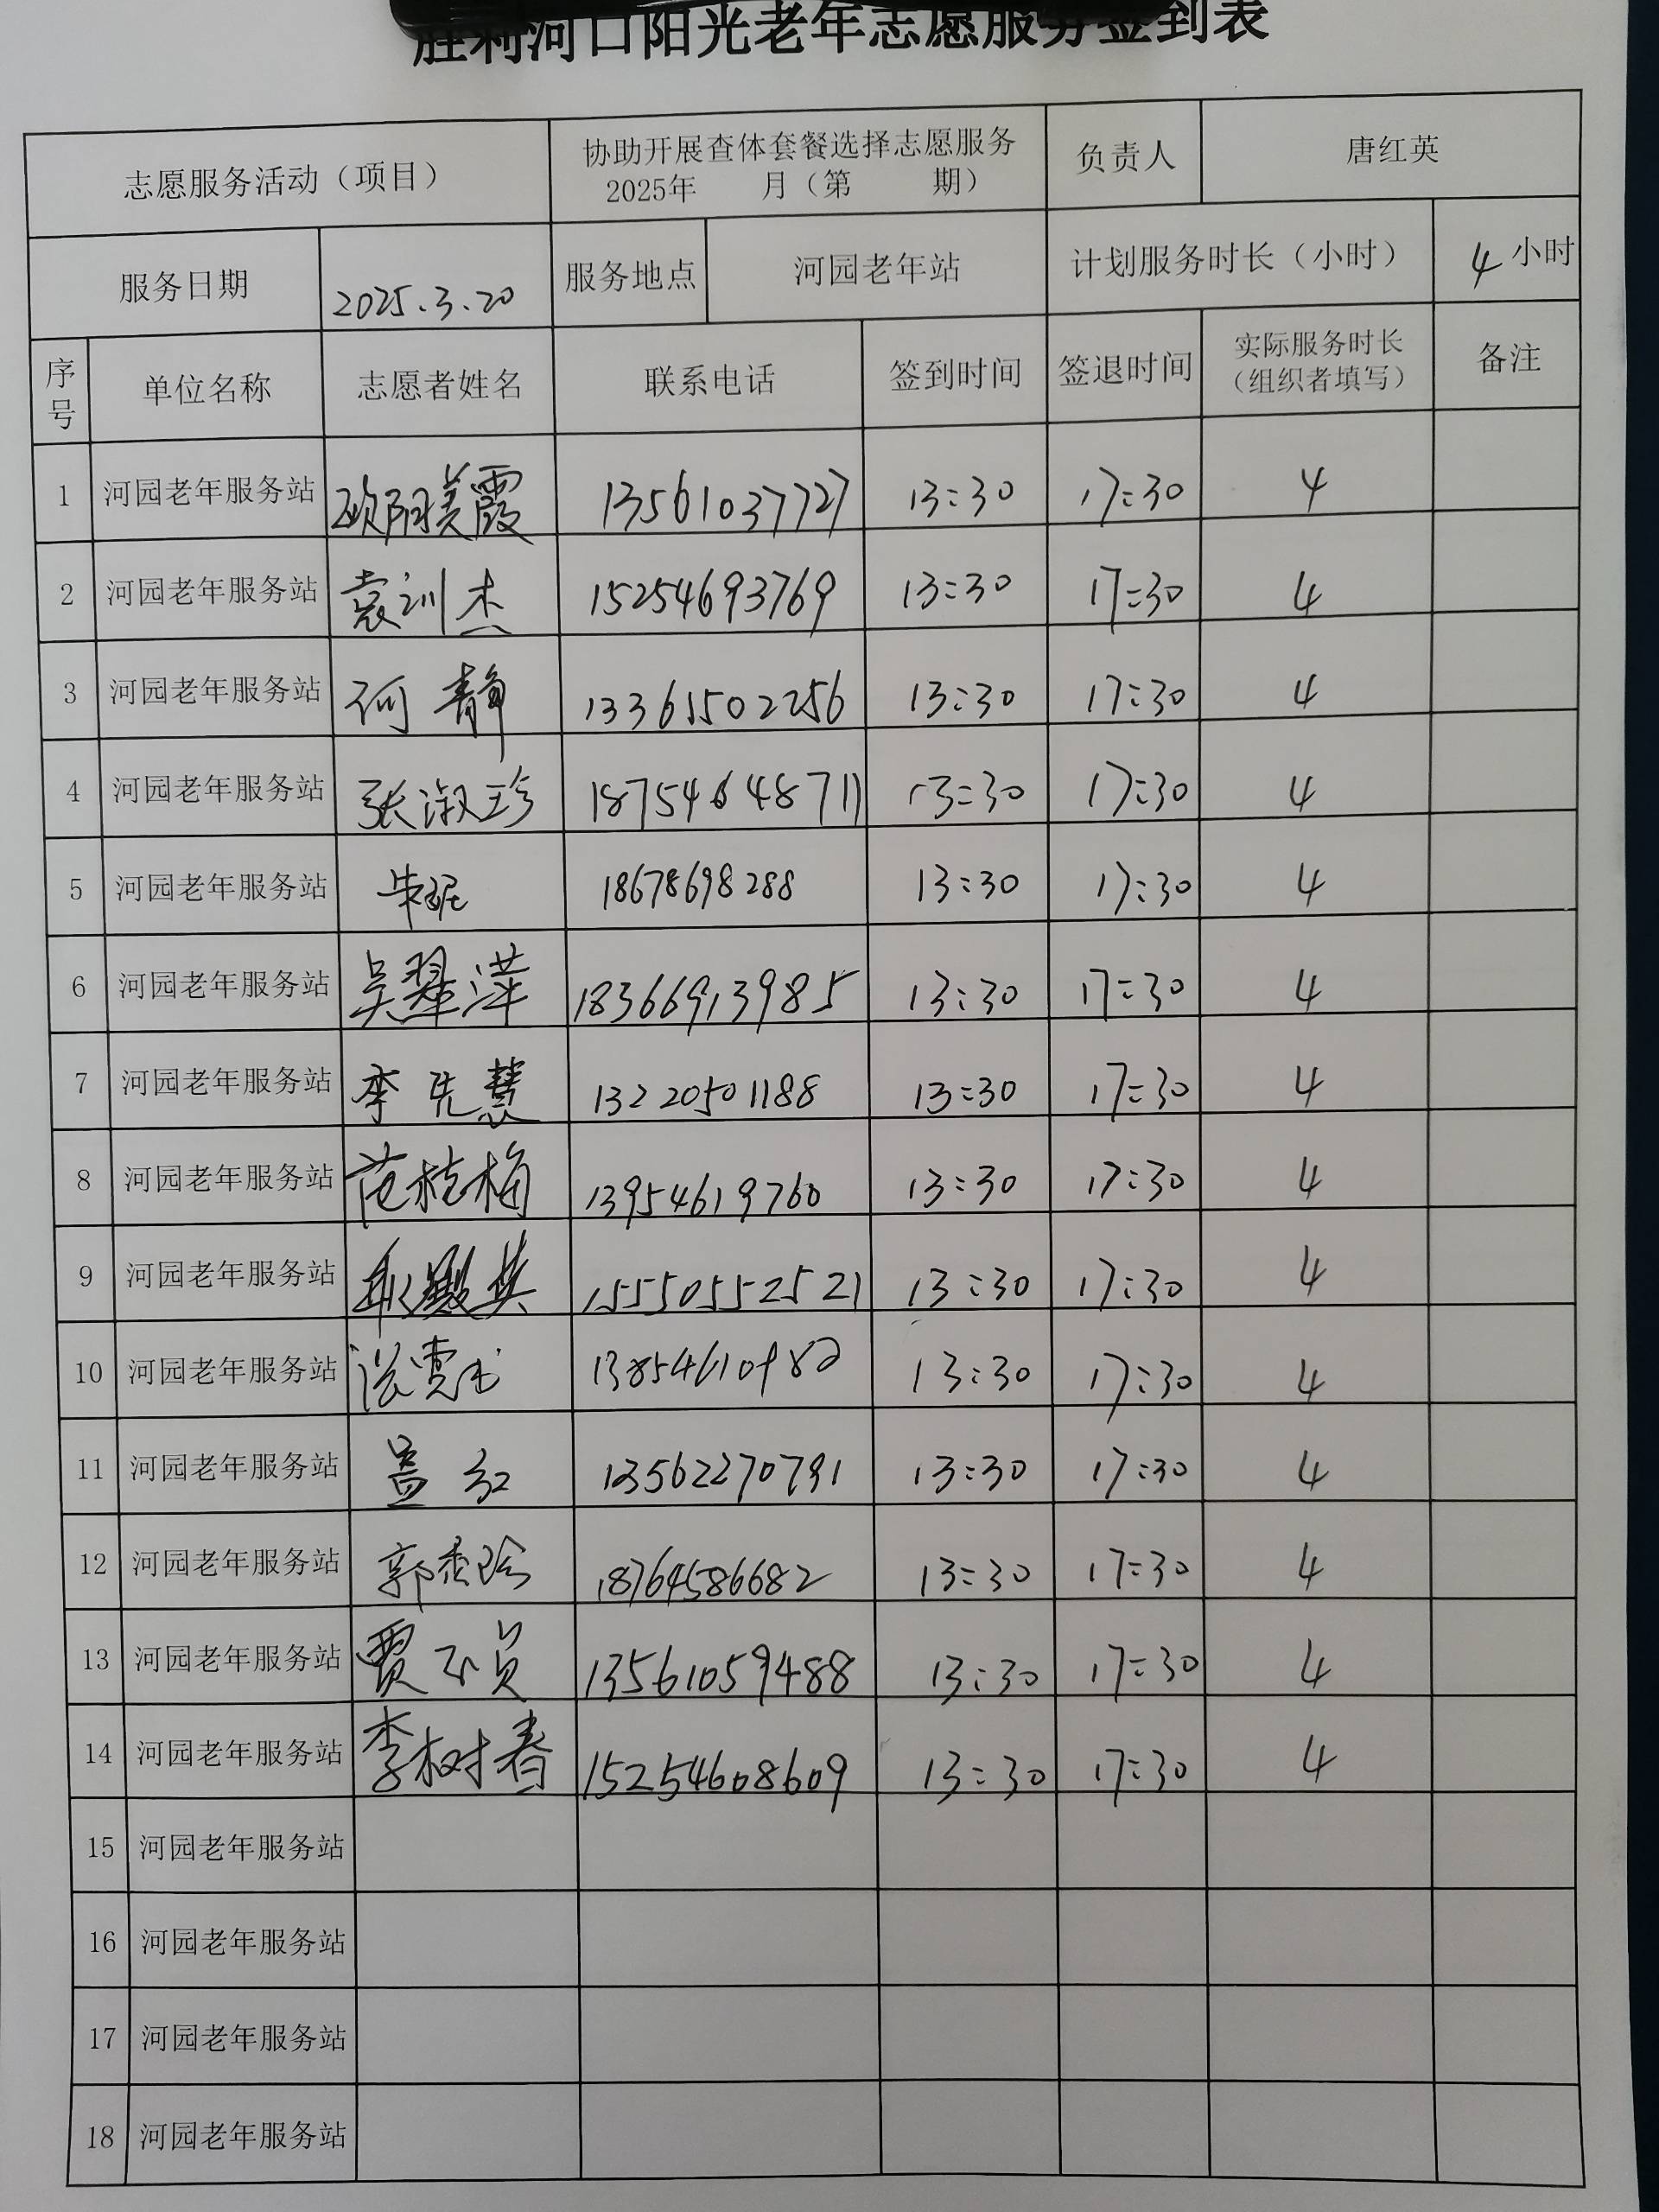 胜利河口阳光老年志愿服务签到表
志愿服务活动（项目） 协助开展查体套餐选择志愿服务 负责人 唐红英
2025年 月（第 期）
服务日期 2025.3.20 服务地点 河园老年站 计划服务时长（小时） 4小时
序号 单位名称 志愿者姓名 联系电话 签到时间 签退时间 实际服务时长（组织者填写） 备注
1 河园老年服务站 欧阳美霞 13561037727 13:30 17:30 4
2 河园老年服务站 袁训杰 15254693769 13:30 17:30 4
3 河园老年服务站 何静 13361502256 13:30 17:30 4
4 河园老年服务站 张淑珍 18754648711 13:30 17:30 4
5 河园老年服务站 18678698288 13:30 17:30 4
6 河园老年服务站 吴翠萍 18366913985 13:30 17:30 4
7 河园老年服务站 李先慧 13220501188 13:30 17:30 4
8 河园老年服务站 范桂梅 13954619760 13:30 17:30 4
9 河园老年服务站 15550552521 13:30 17:30 4
10 河园老年服务站 13:30 17:30 4
11 河园老年服务站 盖红 13562270791 13:30 17:30 4
12 河园老年服务站 18764586682 13:30 17:30 4
13 河园老年服务站 13561059488 13:30 17:30 4
14 河园老年服务站 李树春 15254608609 13:30 17:30 4
15 河园老年服务站
16 河园老年服务站
17 河园老年服务站
18 河园老年服务站